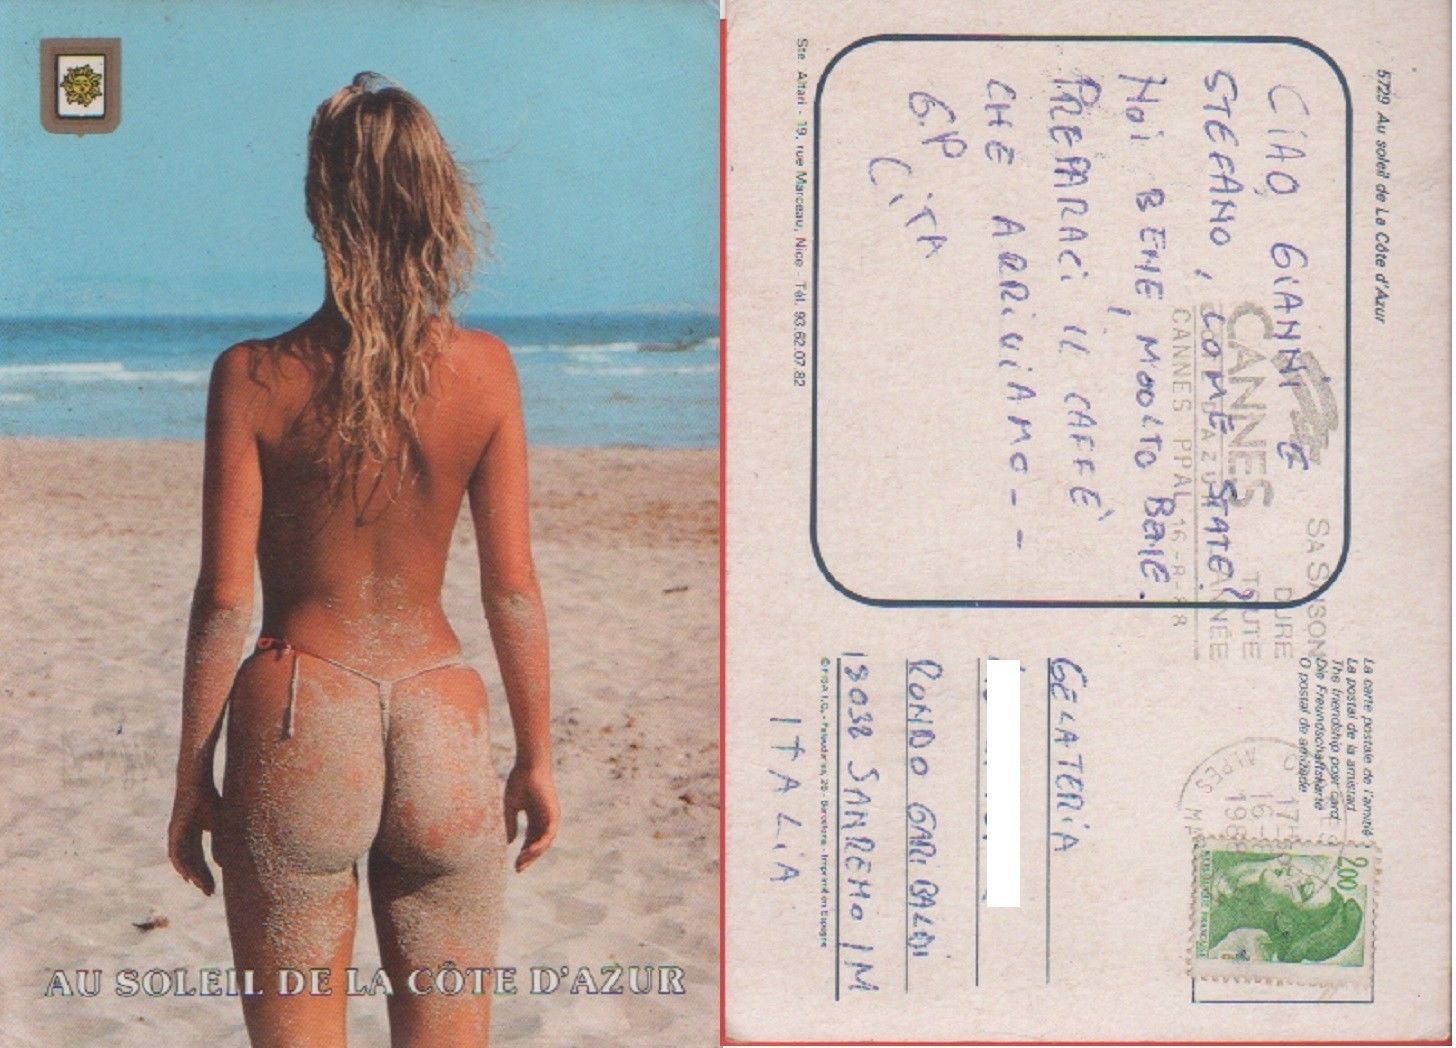 AU SOLEIL DE LA CÔTE D'AZUR
5729 Au soleil de La Côte d'Azur
CiAO, GiANNi E
STEFANO, COME STATE?
NOi BENE, MOOLTO BENE.
PREPARACi IL CAFFÈ
CHE ARRiViAMO--
G.P
CiTA
Ste Altari - 19, rue Marceau, Nice - Tél. 93.62.07.82
SA SAISON
DURE
TOUTE
L'ANNÉE
CANNES
CANNES PPAL 16-8-88
La carte postale de l'amitié
La postal de la amistad
The friendship post card
Die Freundschaftskarte
O postal de amizade
17H
16-
ALPES
2,00
GELATERiA
RONDO GARiBALDi
18038 SANREMO IM
ITALiA